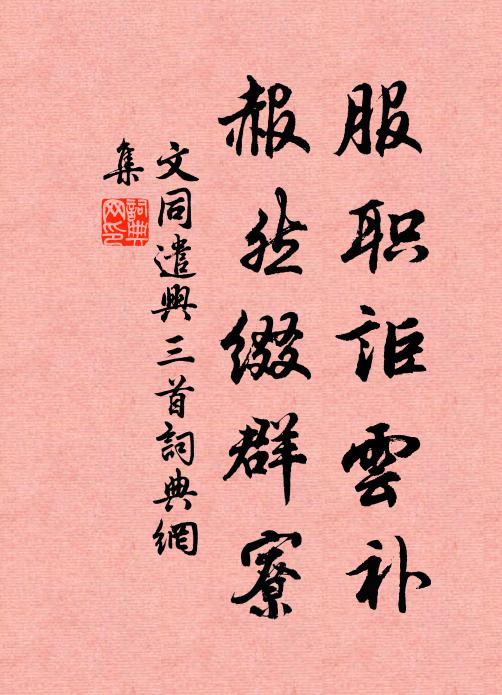 服职詎雲补
赧然缀群寮
文同遣興三首詞典網
集
詞典
网印